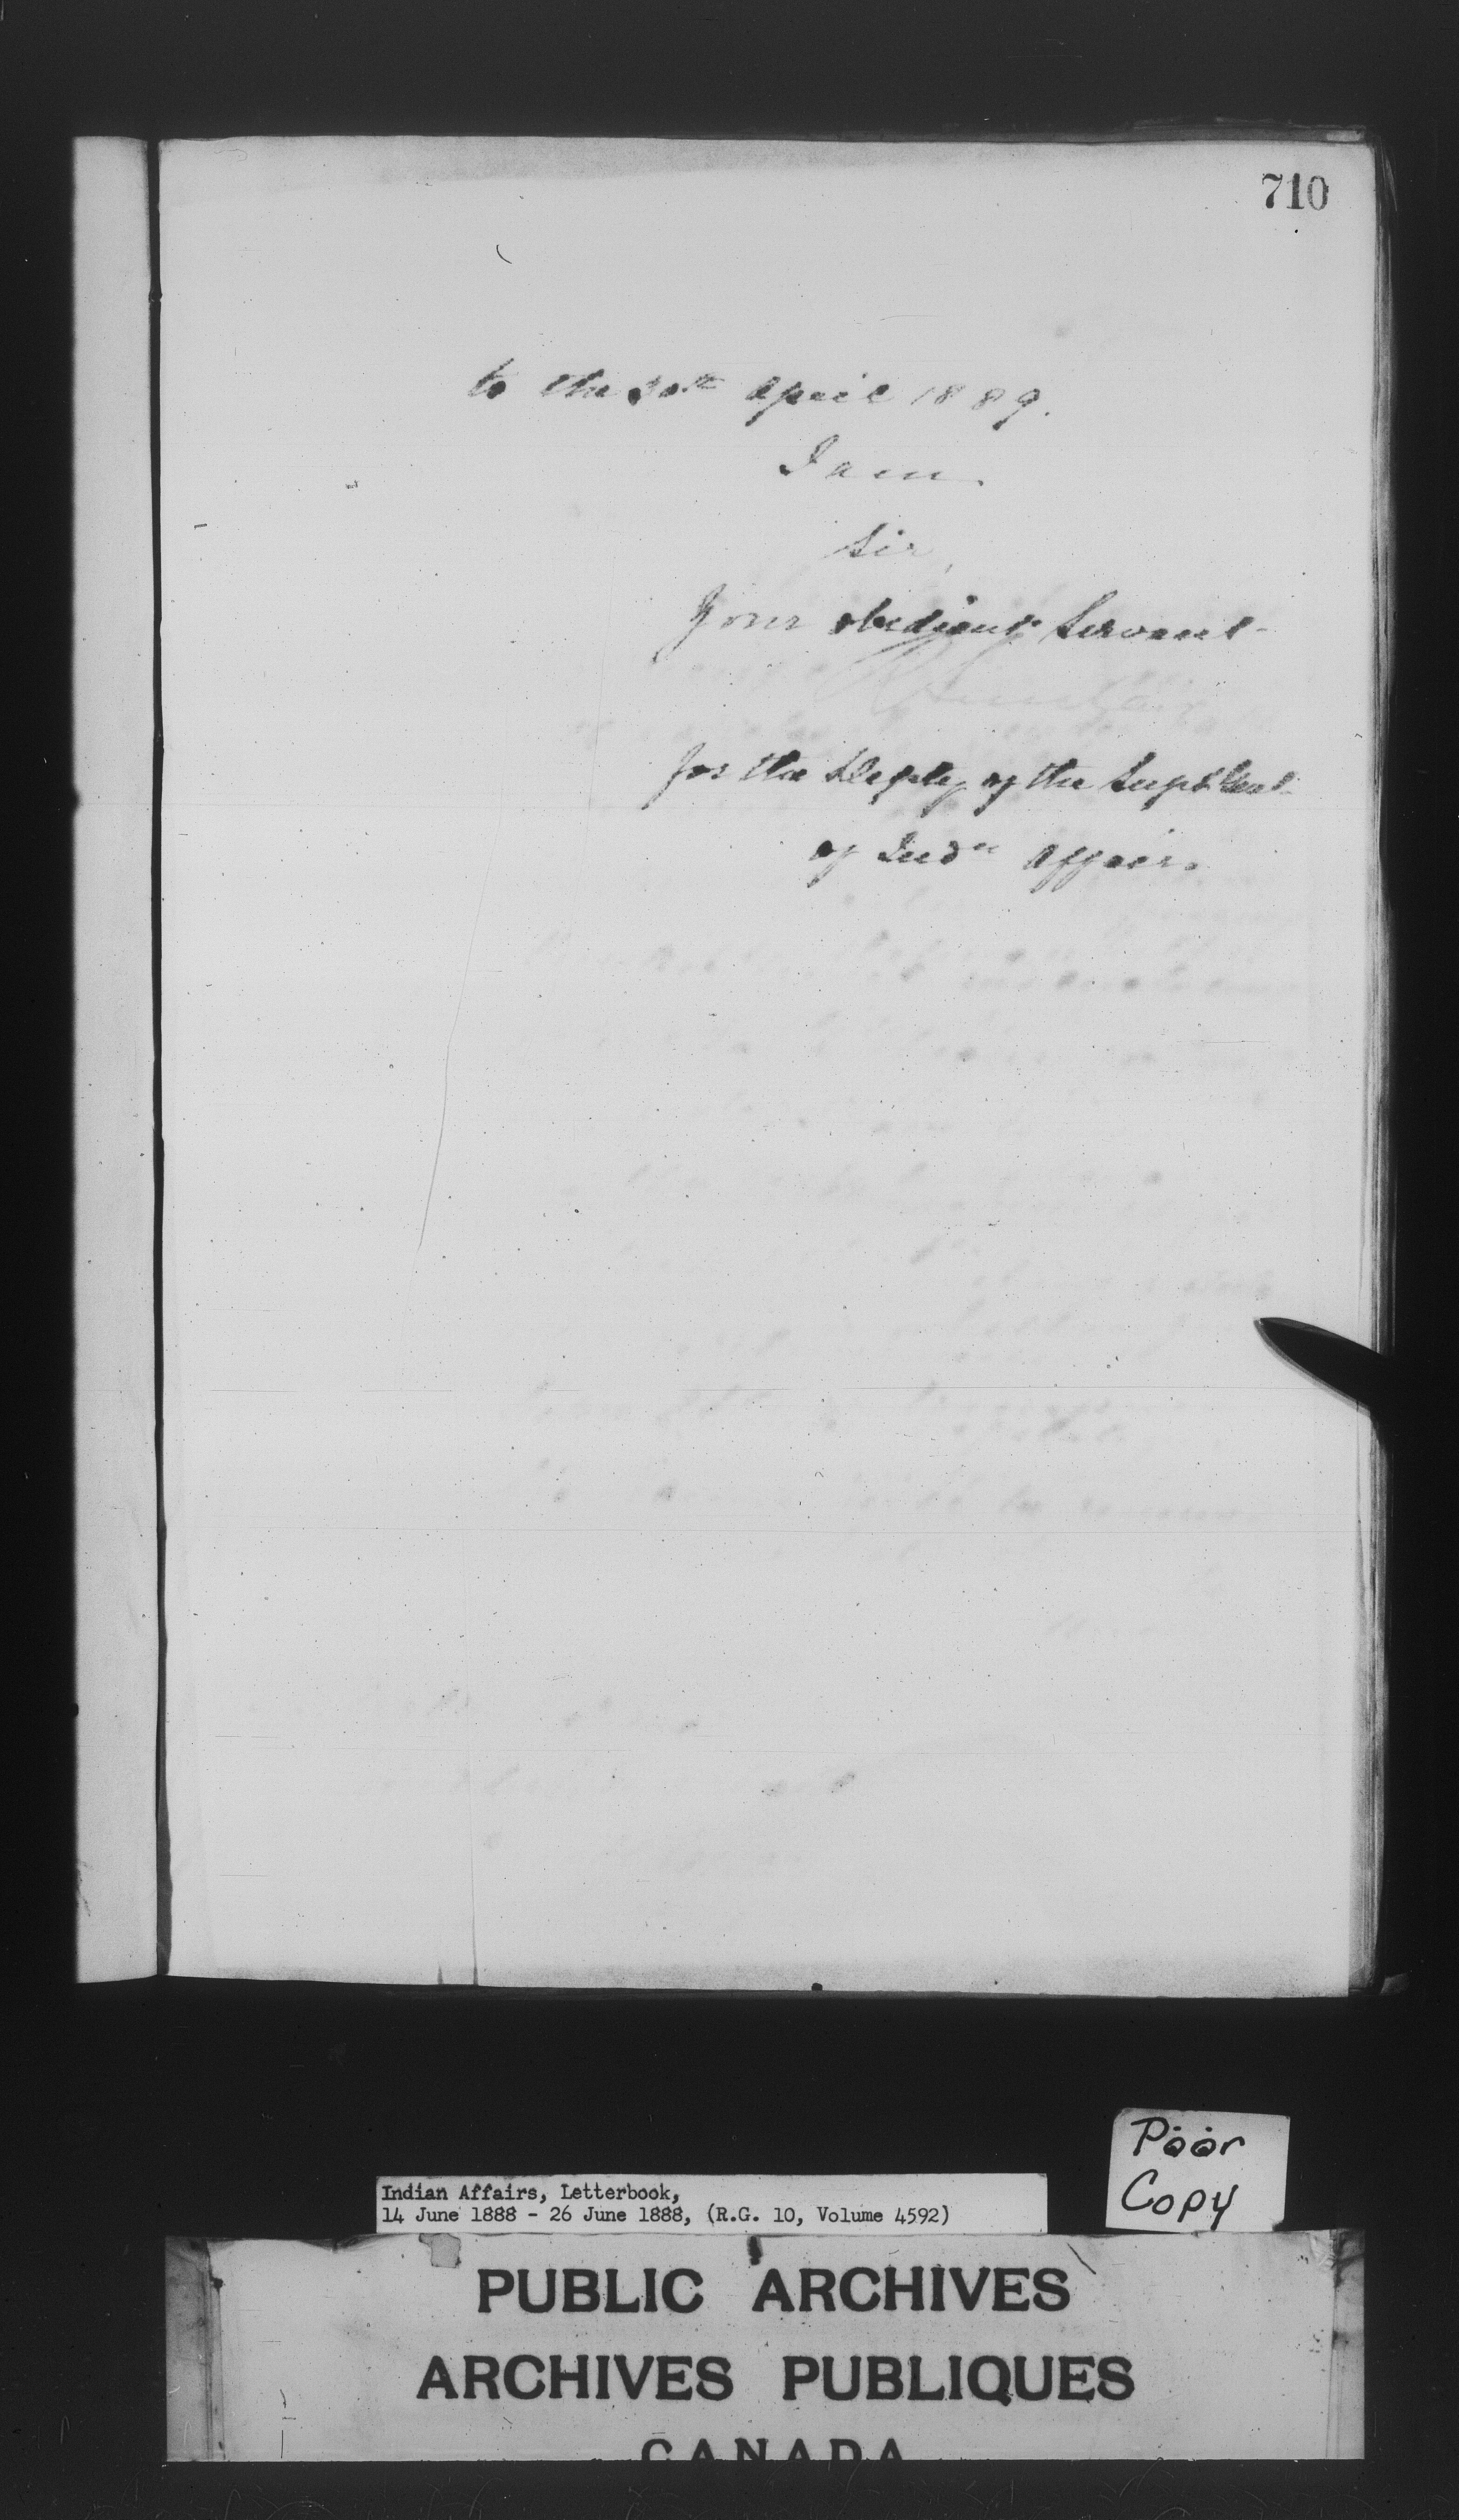 710
to the 30th April 1889.
I am
Sir,
Your obedient Servant
R Sinclair
for the Deputy of the Supt Genl
of Indn Affairs
Poor
Copy
Indian Affairs, Letterbook,
14 June 1888 - 26 June 1888, (R.G. 10, Volume 4592)
PUBLIC ARCHIVES
ARCHIVES PUBLIQUES
CANADA